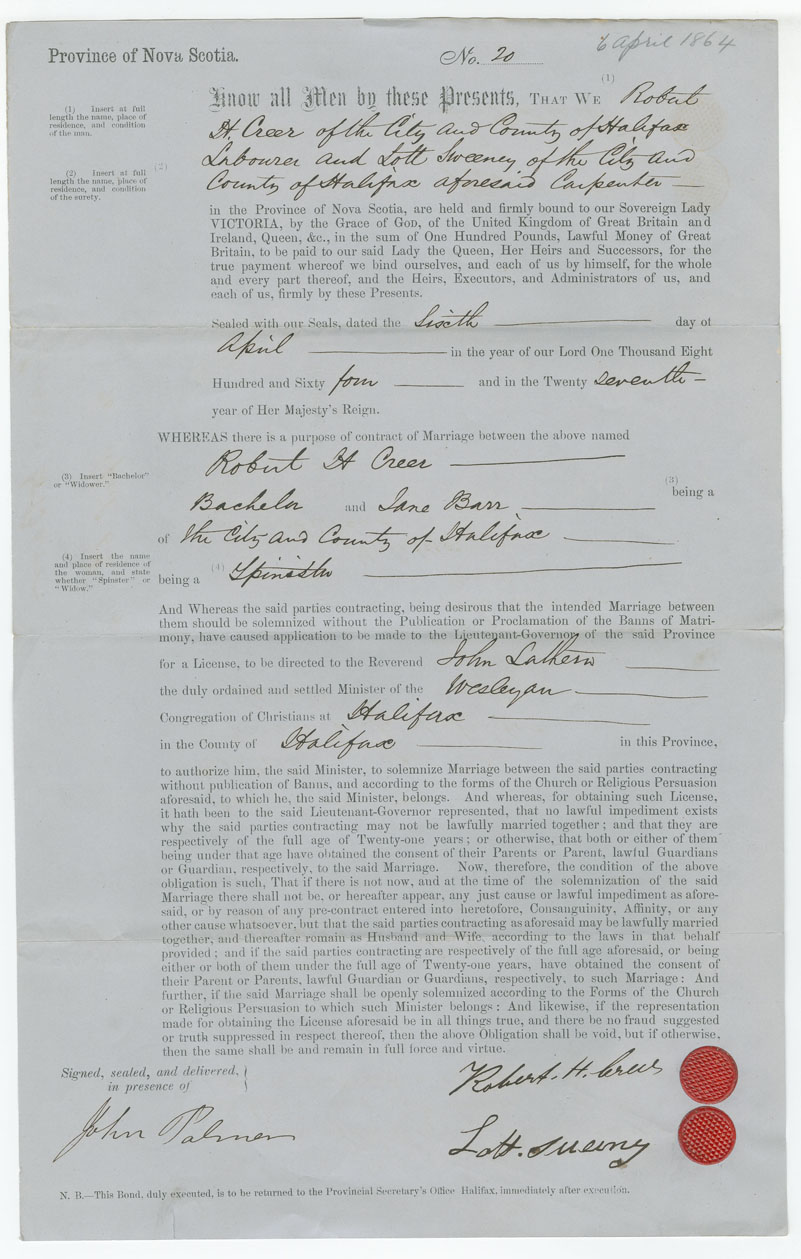 6 April 1864
Province of Nova Scotia.
No. 20
(1)
Know all Men by these Presents, THAT WE Robert
(1) Insert at full
length the name, place of
residence, and condition
of the man.
H. Creer of the City and County of Halifax
(2)
Labourer and Lott Sweeney of the City and
(2) Insert at full
length the name, place of
residence, and condition
of the surety.
County of Halifax aforesaid Carpenter
in the Province of Nova Scotia, are held and firmly bound to our Sovereign Lady
VICTORIA, by the Grace of GOD, of the United Kingdom of Great Britain and
Ireland, Queen, &c., in the sum of One Hundred Pounds, Lawful Money of Great
Britain, to be paid to our said Lady the Queen, Her Heirs and Successors, for the
true payment whereof we bind ourselves, and each of us by himself, for the whole
and every part thereof, and the Heirs, Executors, and Administrators of us, and
each of us, firmly by these Presents.
Sealed with our Seals, dated the Sixth day of
April in the year of our Lord One Thousand Eight
Hundred and Sixty four and in the Twenty seventh
year of Her Majesty's Reign.
WHEREAS there is a purpose of contract of Marriage between the above named
Robert H Creer
(3) Insert "Bachelor"
or "Widower."
(3)
being a
Bachelor and Jane Barr
of the City and County of Halifax
(4) Insert the name
and place of residence of
the woman, and state
whether "Spinster" or
"Widow."
(4)
being a Spinster
And Whereas the said parties contracting, being desirous that the intended Marriage between
them should be solemnized without the Publication or Proclamation of the Banns of Matri-
mony, have caused application to be made to the Lieutenant-Governor of the said Province
for a License, to be directed to the Reverend John Lathern
the duly ordained and settled Minister of the Wesleyan
Congregation of Christians at Halifax
in the County of Halifax in this Province,
to authorize him, the said Minister, to solemnize Marriage between the said parties contracting
without publication of Banns, and according to the forms of the Church or Religious Persuasion
aforesaid, to which he, the said Minister, belongs. And whereas, for obtaining such License,
it hath been to the said Lieutenant-Governor represented, that no lawful impediment exists
why the said parties contracting may not be lawfully married together; and that they are
respectively of the full age of Twenty-one years; or otherwise, that both or either of them
being under that age have obtained the consent of their Parents or Parent, lawful Guardians
or Guardian, respectively, to the said Marriage. Now, therefore, the condition of the above
obligation is such, That if there is not now, and at the time of the solemnization of the said
Marriage there shall not be, or hereafter appear, any just cause or lawful impediment as afore-
said, or by reason of any pre-contract entered into heretofore, Consanguinity, Affinity, or any
other cause whatsoever, but that the said parties contracting as aforesaid may be lawfully married
together, and thereafter remain as Husband and Wife, according to the laws in that behalf
provided; and if the said parties contracting are respectively of the full age aforesaid, or being
either or both of them under the full age of Twenty-one years, have obtained the consent of
their Parent or Parents, lawful Guardian or Guardians, respectively, to such Marriage: And
further, if the said Marriage shall be openly solemnized according to the Forms of the Church
or Religious Persuasion to which such Minister belongs: And likewise, if the representation
made for obtaining the License aforesaid be in all things true, and there be no fraud suggested
or truth suppressed in respect thereof, then the above Obligation shall be void, but if otherwise,
then the same shall be and remain in full force and virtue.
Signed, sealed, and delivered,
in presence of
Robert. H. Creer
John Palmer
Lott. Sweeny
N. B.—This Bond, duly executed, is to be returned to the Provincial Secretary's Office Halifax, immediately after execution.